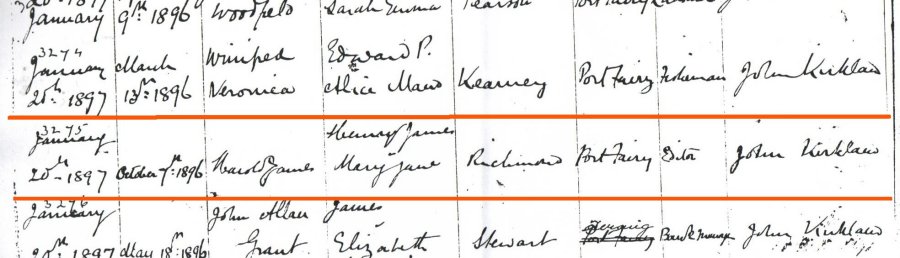 January 9th 1896 Woodfield Sarah Emma Pearson Port Fairy
3274
January March Winifred Edward P.
20th 1897 13th 1896 Veronica Alice Maud Kearney Port Fairy Fisherman John Kirklaw
3275
January Henry James
20th 1897 October 7th 1896 Harold James Mary Jane Richmond Port Fairy Ditto John Kirklaw
3276
January John Allan James
20th 1897 May 18th 1896 Grant Elizabeth Stewart Port Fairy Bank Manager John Kirklaw